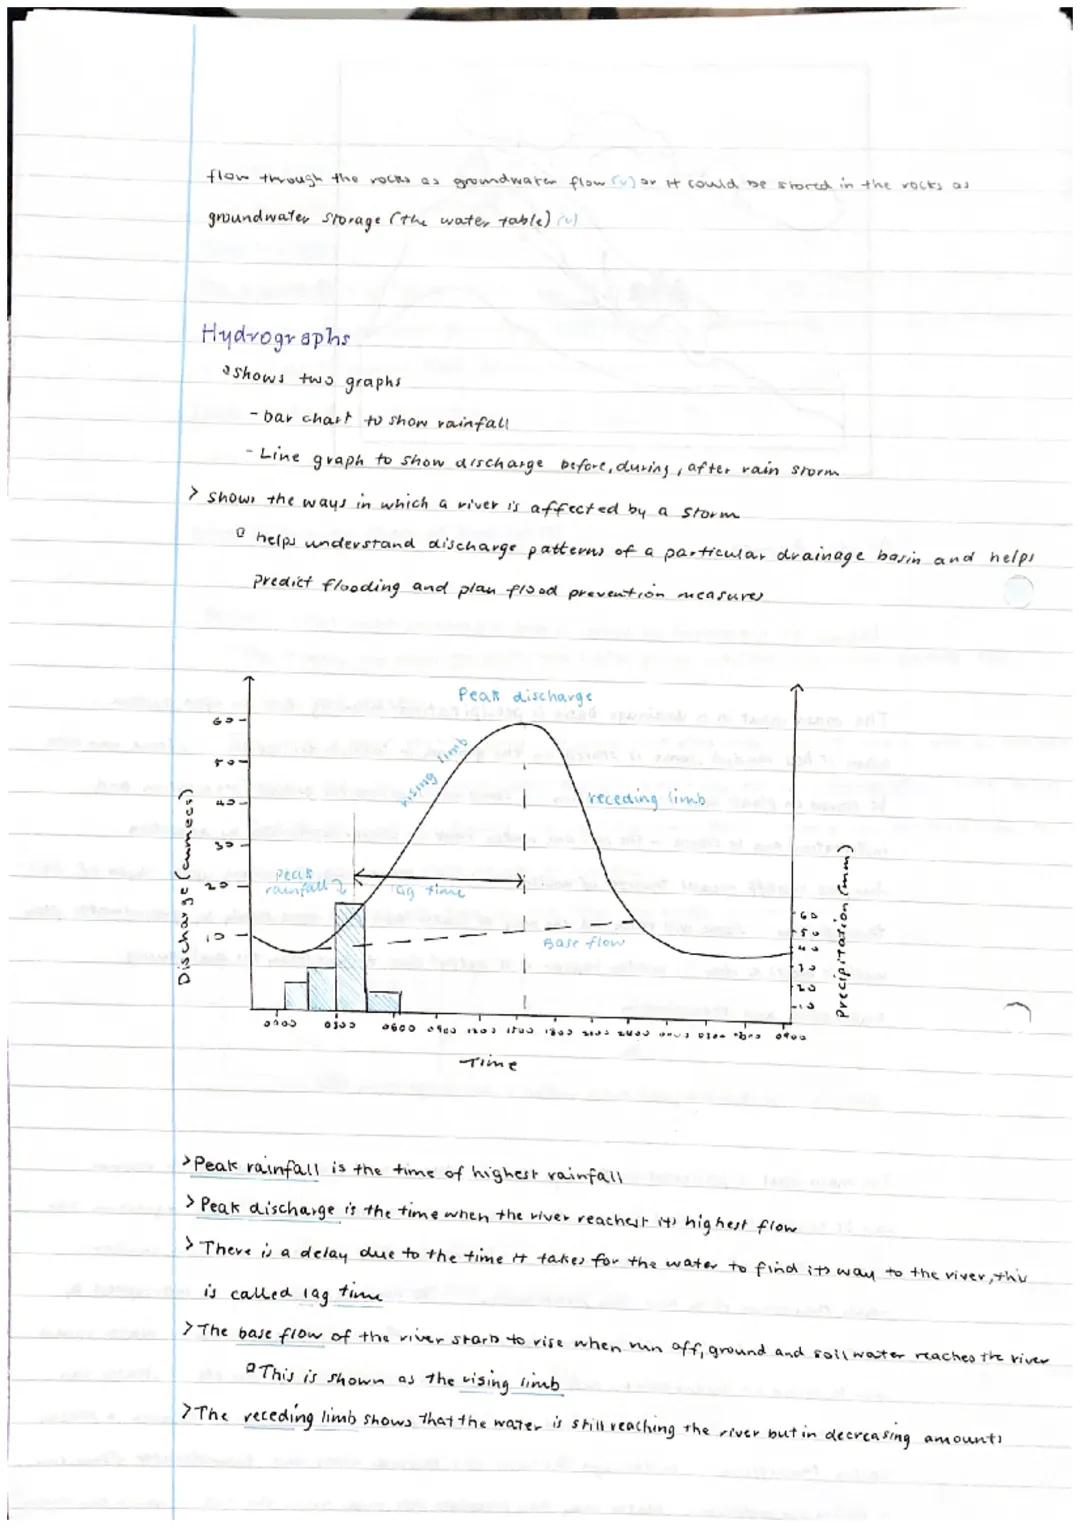 flow through the rocks as groundwater flow (v) or it could be stored in the rocks as
groundwater storage (the water table) (v)
Hydrographs
shows two graphs
- bar chart to show rainfall
- Line graph to show discharge before, during, after rain storm
> shows the ways in which a river is affected by a storm
helps understand discharge patterns of a particular drainage basin and helps
predict flooding and plan flood prevention measures
Peak discharge
60
50
40
30
20
10
Discharge (cumecs)
rising limb
receding limb
Peak
rainfall
lag time
Base flow
60
50
40
30
20
10
Precipitation (mm)
0000 0300 0600 0900 1200 1500 1800 2100 2400 0900
Time
> Peak rainfall is the time of highest rainfall
> Peak discharge is the time when the river reachest its highest flow
> There is a delay due to the time it takes for the water to find its way to the river, this
is called lag time
> The base flow of the river starts to rise when run off, ground and soil water reaches the river
This is shown as the rising limb
> The receding limb shows that the water is still reaching the river but in decreasing amounts